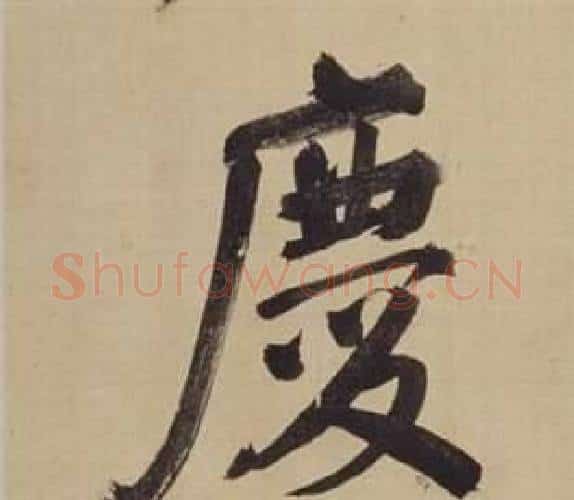 慶
Shufawang.CN